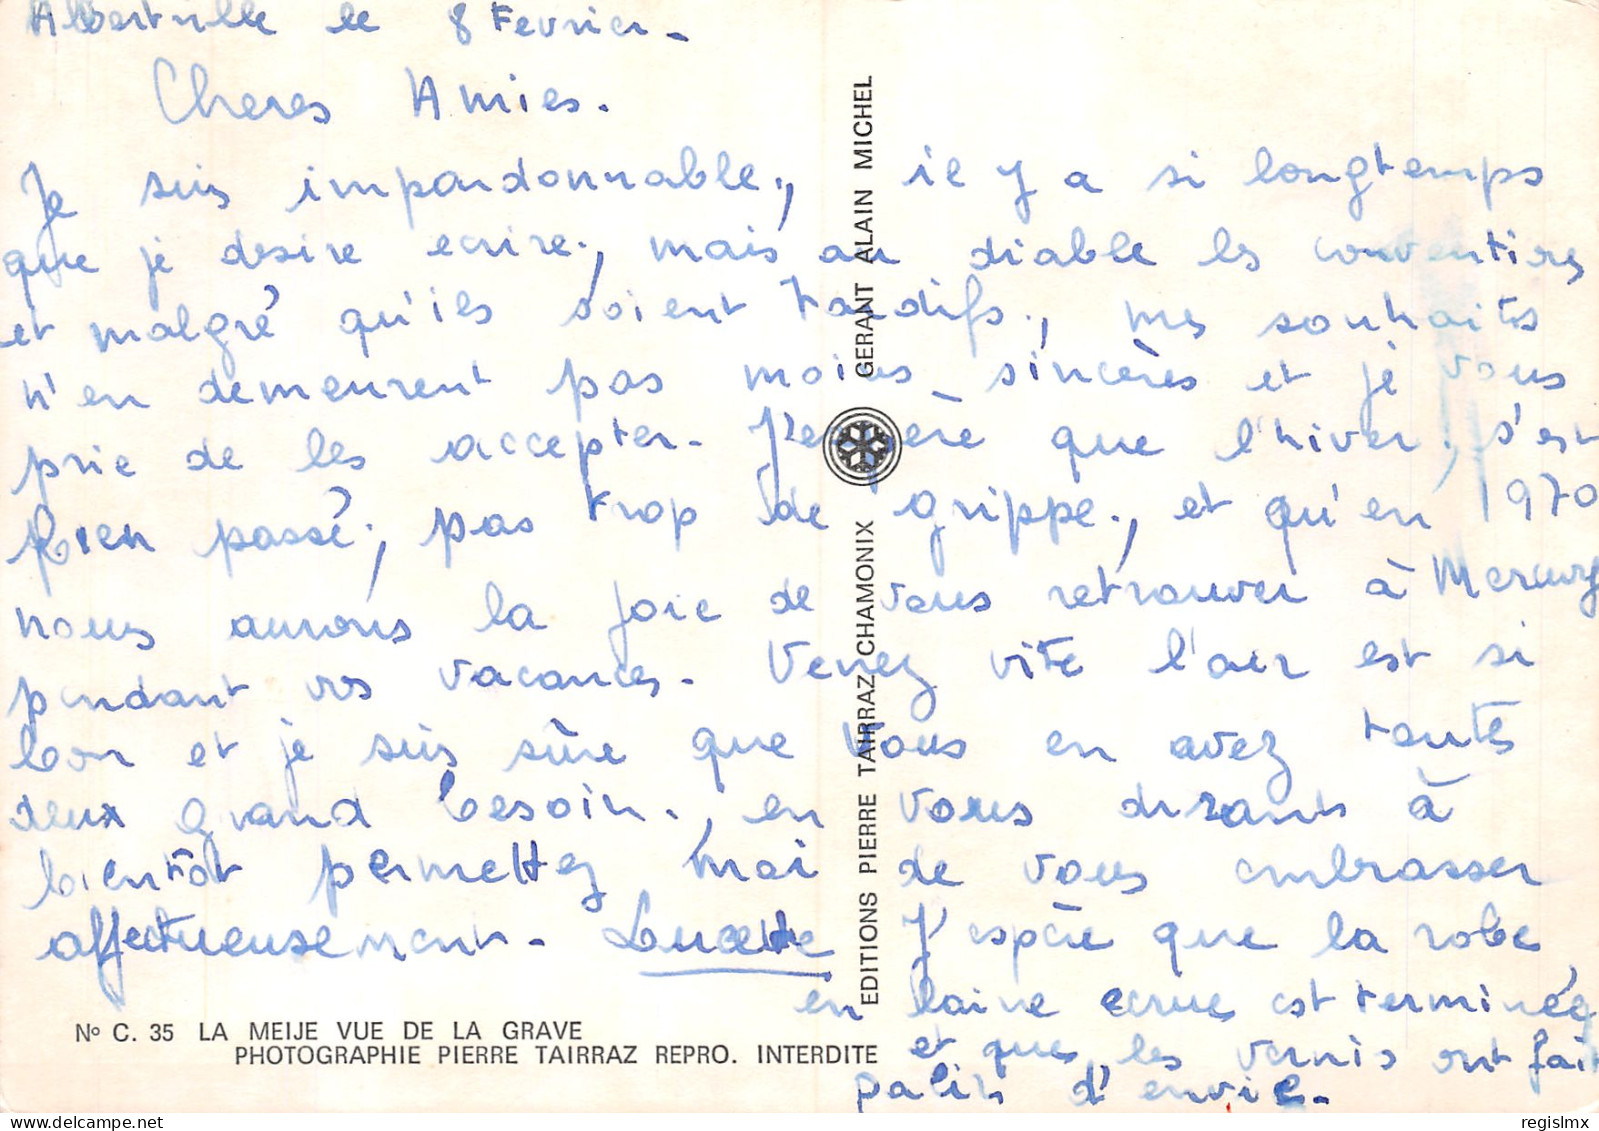 Albertville le 8 Fevrier -
Cheres Amies.
Je suis impardonnable, il y a si longtemps
que je desire ecrire, mais au diable les conventions
et malgré qu'ils soient tardifs, mes souhaits
n'en demeurent pas moins sincères et je vous
prie de les accepter - J'espère que l'hiver, s'est
bien passé, pas trop de grippe, et qu'en 1970
nous aurons la joie de vous retrouver à Mercury
pendant vos vacances - Venez vite l'air est si
bon et je suis sûre que vous en avez toutes
deux grand besoin, en vous disants à
bientôt permettez moi de vous embrasser
affectueusement - Lucette
J'espère que la robe
en laine ecrue est terminée
et que les vernis ont fait
palir d'envie -
EDITIONS PIERRE TAIRRAZ CHAMONIX GERANT ALAIN MICHEL
No C. 35 LA MEIJE VUE DE LA GRAVE
PHOTOGRAPHIE PIERRE TAIRRAZ REPRO. INTERDITE
regislmx